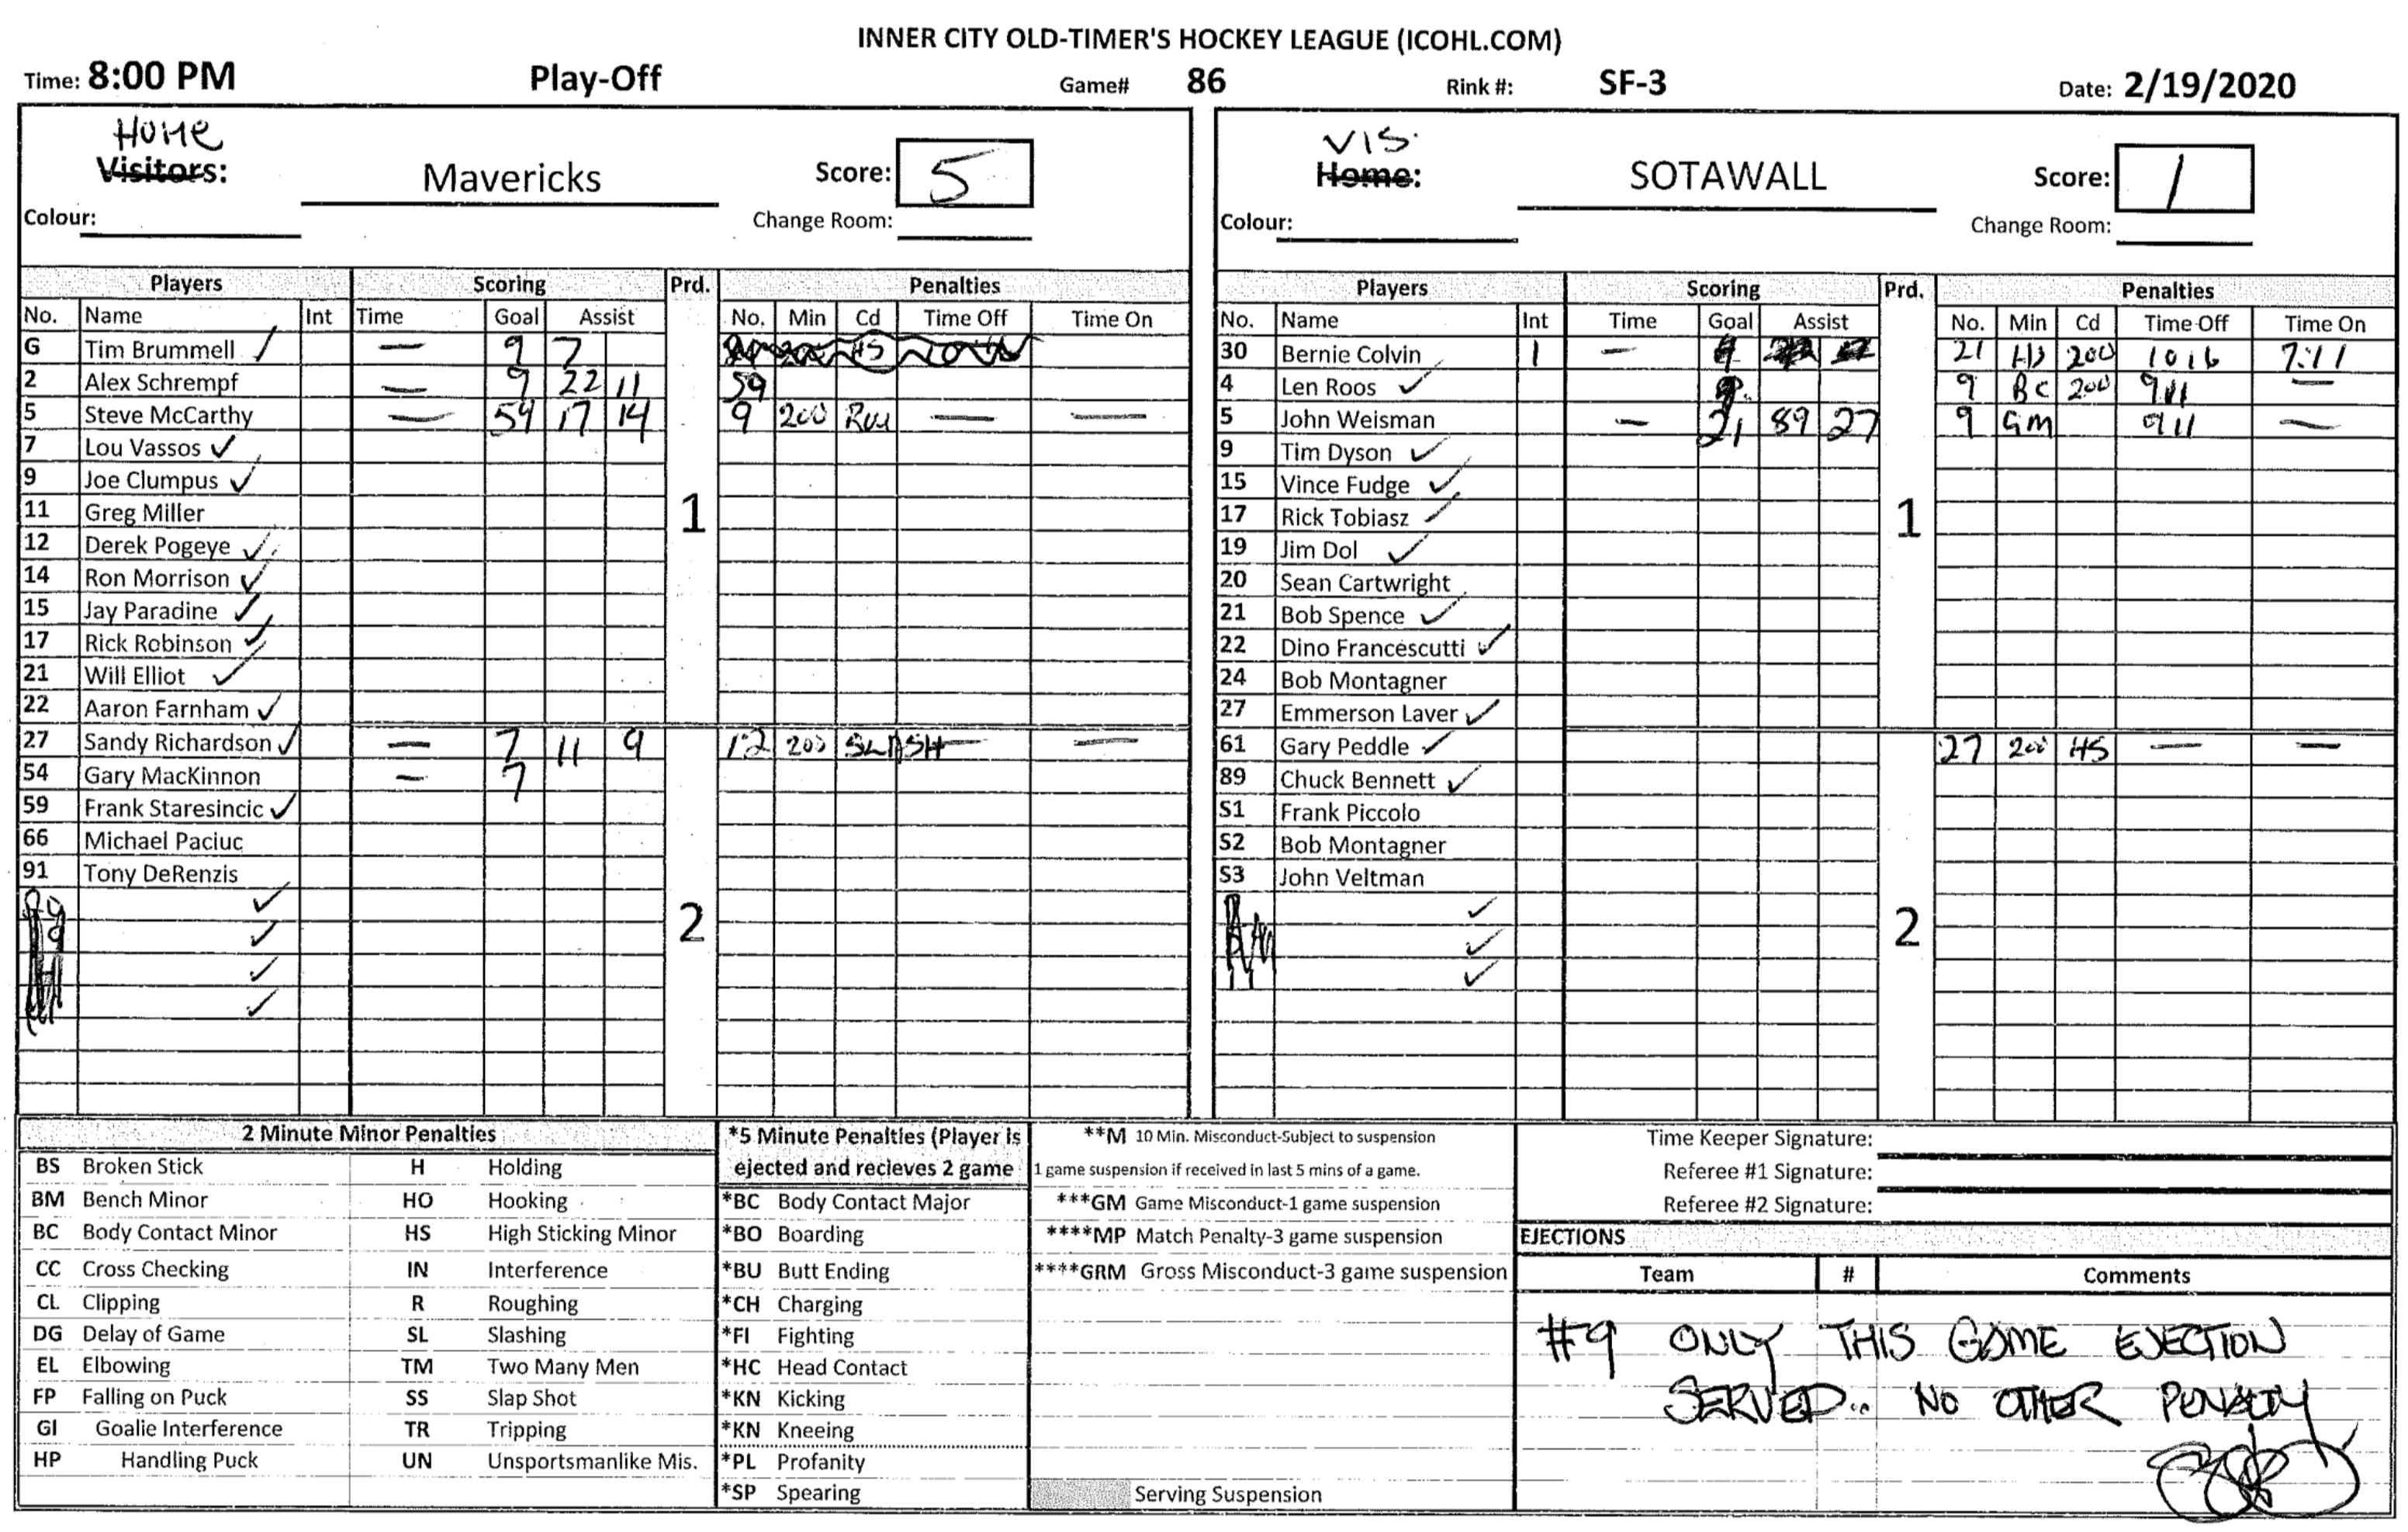 INNER CITY OLD-TIMER'S HOCKEY LEAGUE (ICOHL.COM)
Time: 8:00 PM Play-Off Game# 86 Rink #: SF-3 Date: 2/19/2020
HOME VIS.
Visitors: Mavericks Score: 5 Home: SOTAWALL Score: 1
Colour: Change Room: Colour: Change Room:
Players Scoring Prd. Penalties Players Scoring Prd. Penalties
No. Name Int Time Goal Assist No. Min Cd Time Off Time On No. Name Int Time Goal Assist No. Min Cd Time Off Time On
G Tim Brummell ✓ — 9 7 HS 30 Bernie Colvin 1 — 21 200 1016 7:11
2 Alex Schrempf — 9 22 11 59 4 Len Roos ✓ 9 BC 200 911 —
5 Steve McCarthy — 59 17 14 9 200 — — 5 John Weisman — 21 89 27 9 GM 911 —
7 Lou Vassos ✓ 9 Tim Dyson ✓
9 Joe Clumpus ✓ 15 Vince Fudge ✓
11 Greg Miller 1 17 Rick Tobiasz ✓ 1
12 Derek Pogeye ✓ 19 Jim Dol ✓
14 Ron Morrison ✓ 20 Sean Cartwright
15 Jay Paradine ✓ 21 Bob Spence ✓
17 Rick Robinson ✓ 22 Dino Francescutti ✓
21 Will Elliot ✓ 24 Bob Montagner
22 Aaron Farnham ✓ 27 Emmerson Laver ✓
27 Sandy Richardson ✓ — 7 11 9 12 200 SLASH — — 61 Gary Peddle ✓ 27 200 HS — —
54 Gary MacKinnon — 7 89 Chuck Bennett ✓
59 Frank Staresincic ✓ S1 Frank Piccolo
66 Michael Paciuc S2 Bob Montagner
91 Tony DeRenzis S3 John Veltman
✓ ✓
✓ 2 ✓ 2
✓ ✓
✓
2 Minute Minor Penalties *5 Minute Penalties (Player is **M 10 Min. Misconduct-Subject to suspension Time Keeper Signature:
BS Broken Stick H Holding ejected and recieves 2 game 1 game suspension if received in last 5 mins of a game. Referee #1 Signature:
BM Bench Minor HO Hooking *BC Body Contact Major ***GM Game Misconduct-1 game suspension Referee #2 Signature:
BC Body Contact Minor HS High Sticking Minor *BO Boarding ****MP Match Penalty-3 game suspension EJECTIONS
CC Cross Checking IN Interference *BU Butt Ending ****GRM Gross Misconduct-3 game suspension Team # Comments
CL Clipping R Roughing *CH Charging
DG Delay of Game SL Slashing *FI Fighting #9 ONLY THIS GAME EJECTION
EL Elbowing TM Two Many Men *HC Head Contact
FP Falling on Puck SS Slap Shot *KN Kicking SERVED.. NO OTHER PENALTY
GI Goalie Interference TR Tripping *KN Kneeing
HP Handling Puck UN Unsportsmanlike Mis. *PL Profanity
*SP Spearing Serving Suspension